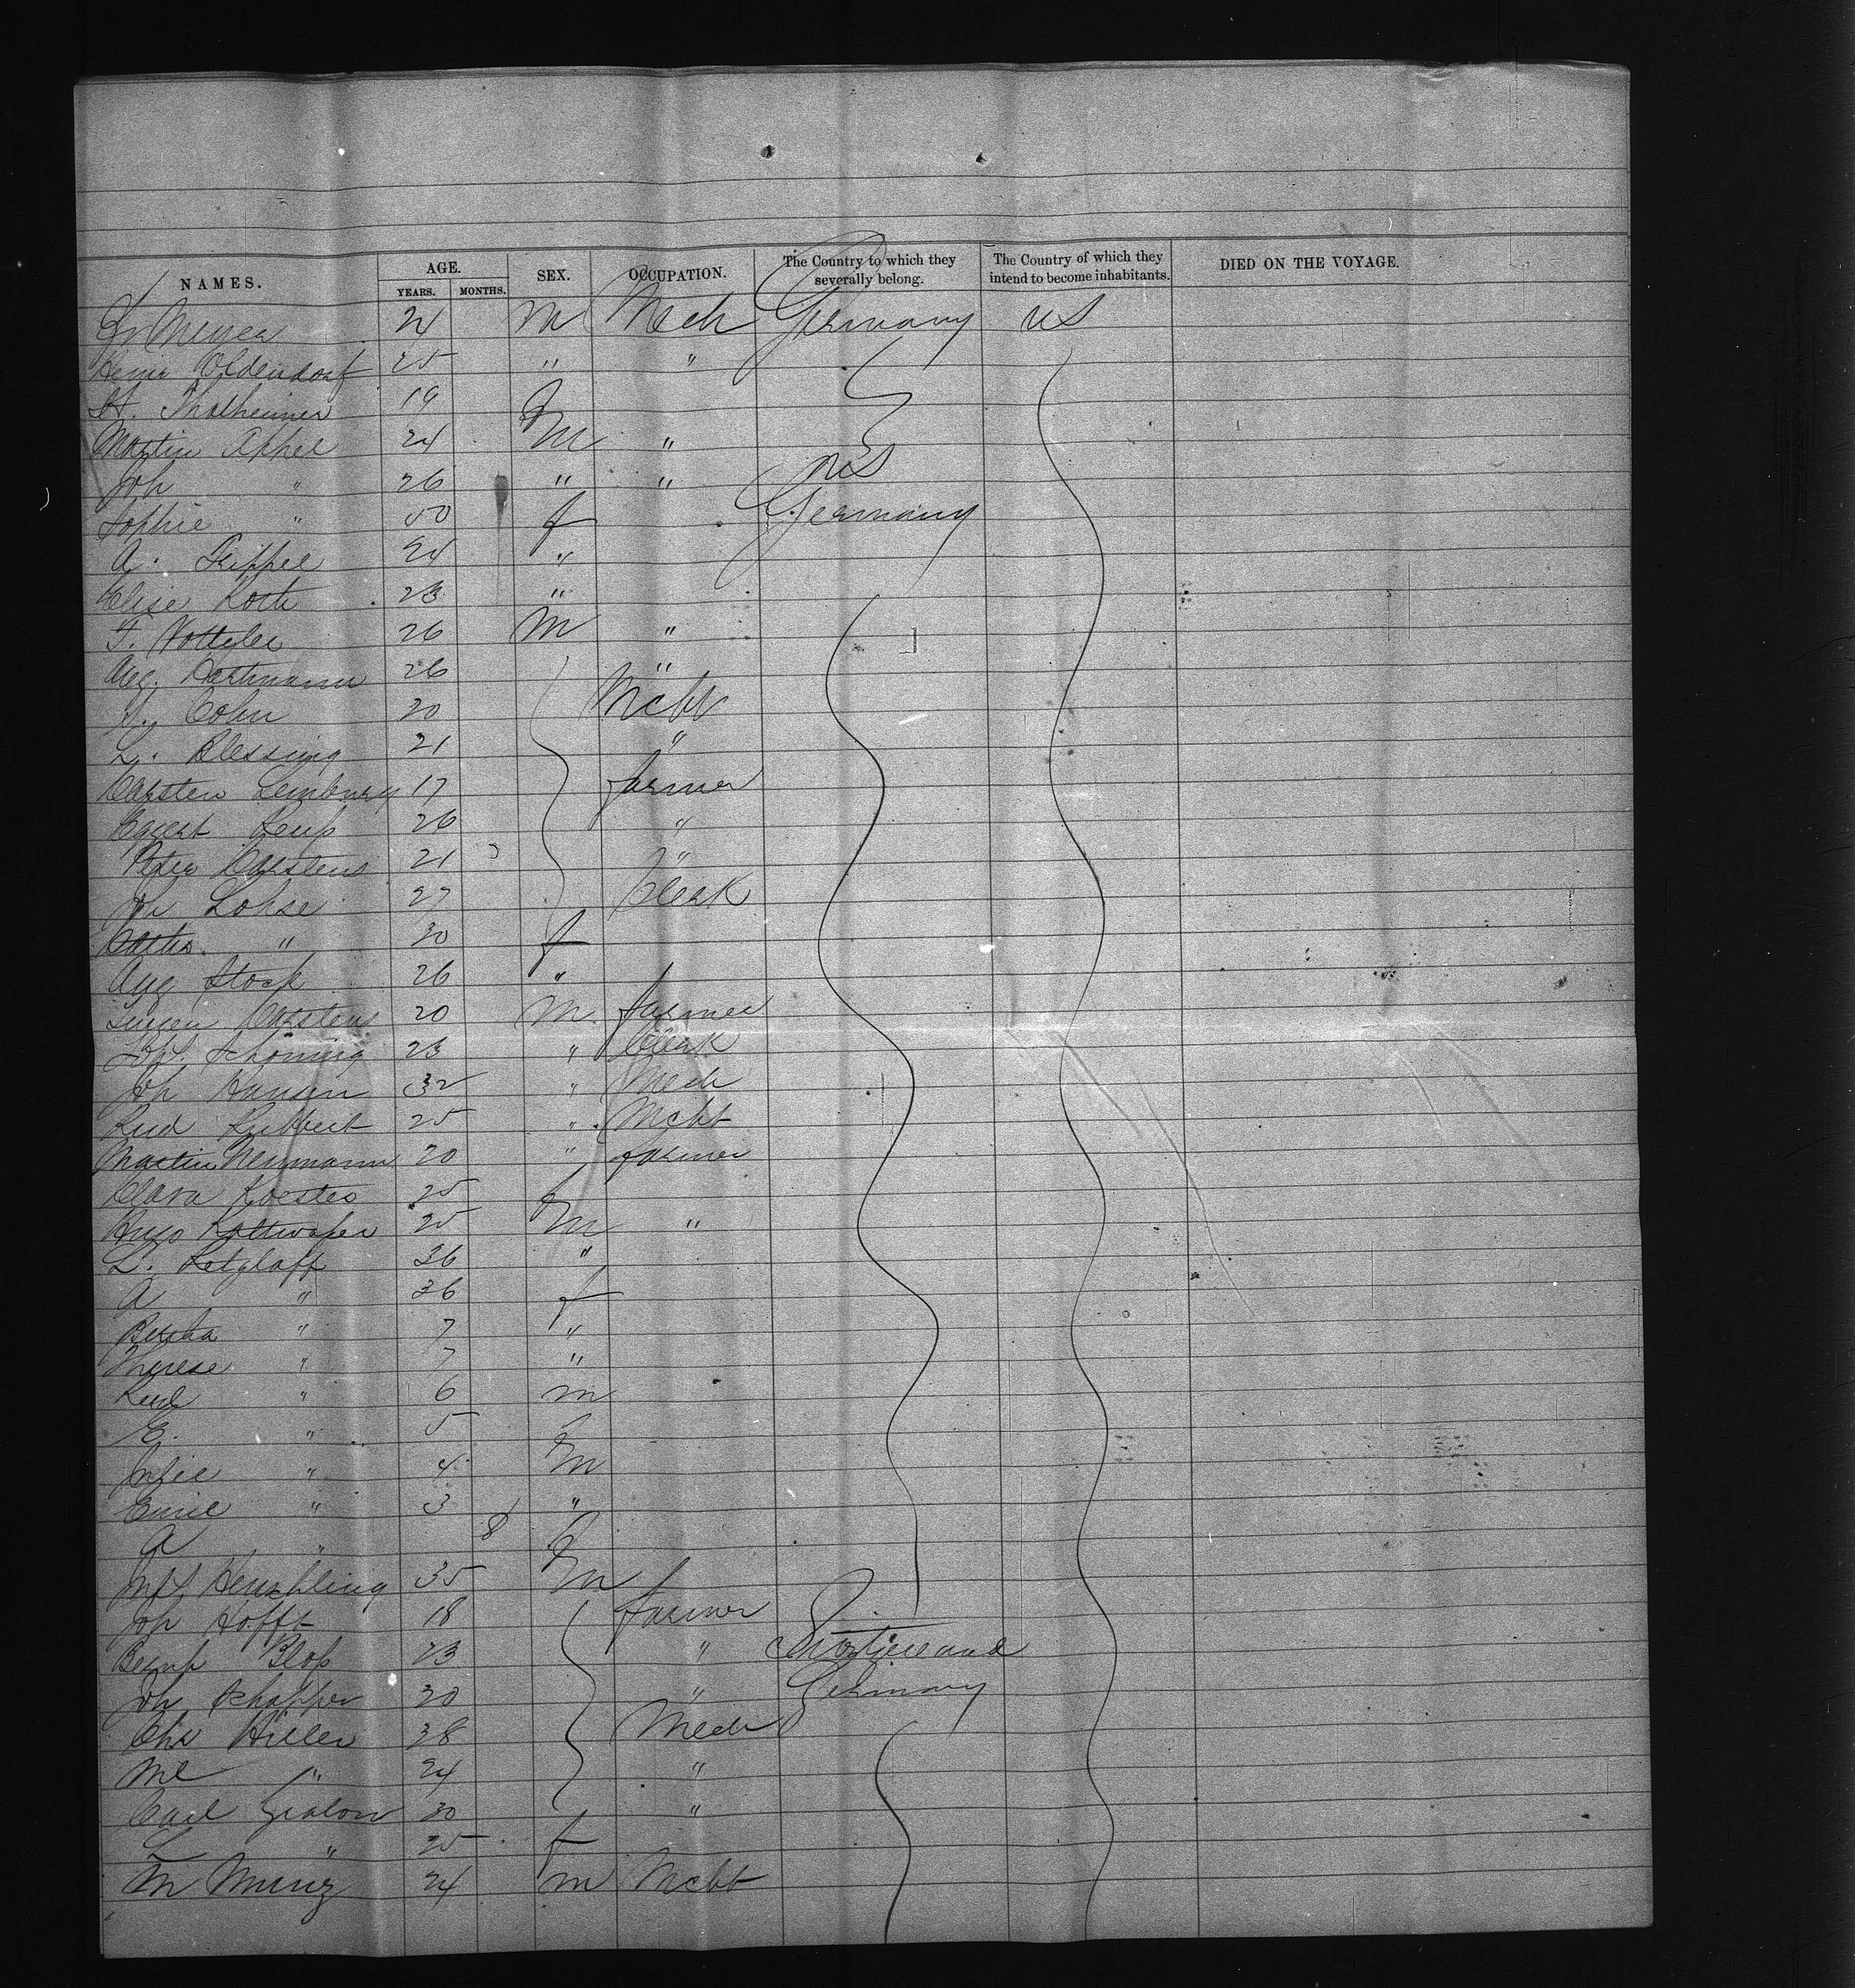 NAMES. AGE. SEX. OCCUPATION. The Country to which they severally belong. The Country of which they intend to become inhabitants. DIED ON THE VOYAGE.
YEARS. MONTHS.
Fr Meyer 24 M Mech Germany US
Heinr Oldendorf 25 " "
H. Thalheimer 19 f
Martin Appel 24 M "
Joh " 26 " " US
Sophie " 50 f Germany
A. Kippel 24 "
Elise Koch 23 "
F. Votteler 26 M "
Aug. Hartmann 26 "
Cohn 20 Mcht
L. Blessing 21 "
Carsten Lemburg 17 farmer
Eggert 26 "
Peter Carstens 21 "
Lohse 27 Clerk
Cathr. " 30 f
Aug Stock 26 "
Carstens 20 M farmer
Schöning 23 " Clerk
Joh Hansen 32 " Mech
Lud Lubbert 25 " Mcht
Martin Neumann 20 " farmer
Clara Koester 25 f
Hugo 25 M "
L. Retzlaff 36 "
A " 36 f
Bertha " 7 "
Therese " 7 "
" 6 m
E. " 5 f
" 4 M
Emil " 3 "
A " 8 f
35 M
Joh Hofft 18 farmer
23 " Switzerland
Joh Schapper 20 " Germany
Chr Hiller 38 Mech
Ml " 24 "
Carl Gralow 30 "
L " 25 f
M Munz 24 m Mcht